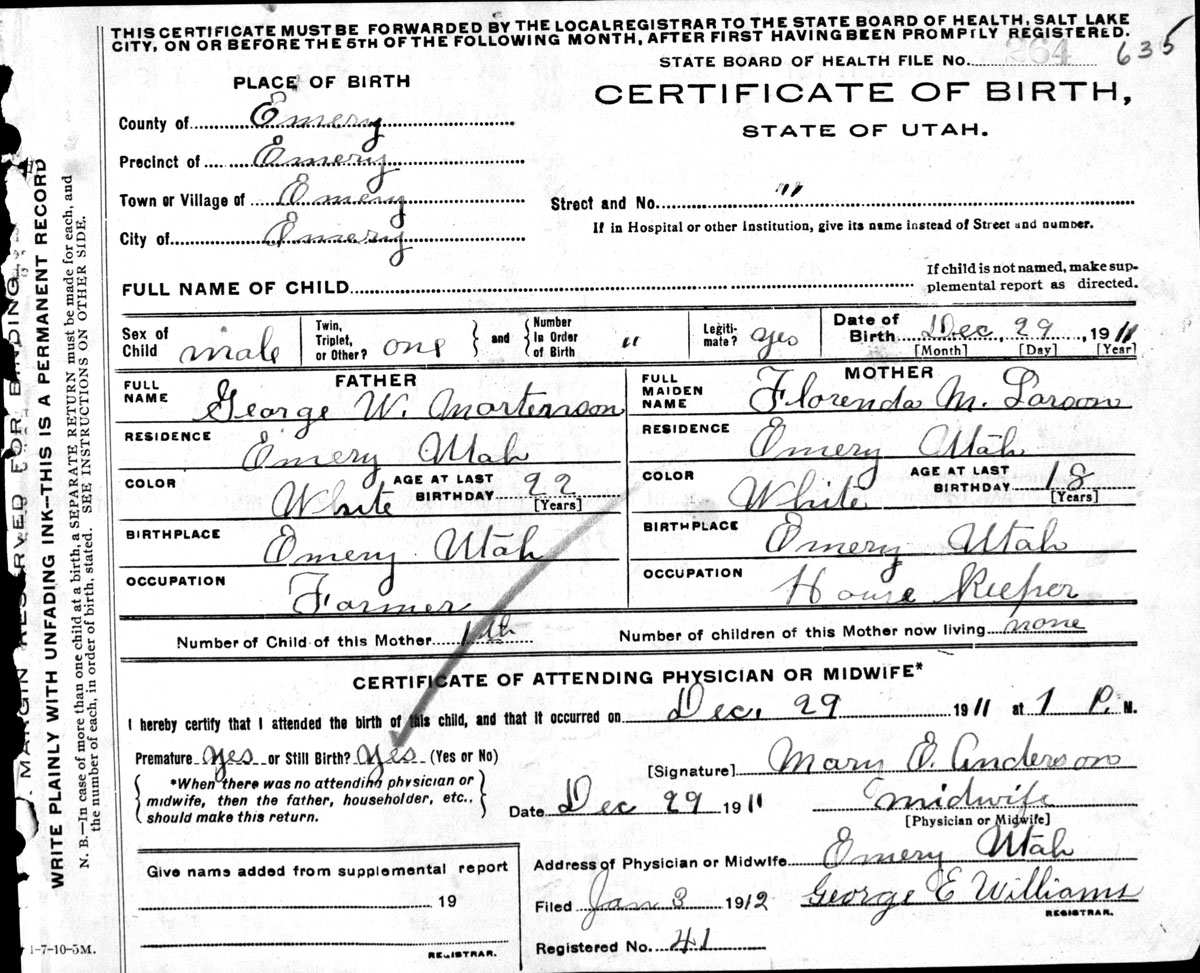 THIS CERTIFICATE MUST BE FORWARDED BY THE LOCAL REGISTRAR TO THE STATE BOARD OF HEALTH, SALT LAKE
CITY, ON OR BEFORE THE 5TH OF THE FOLLOWING MONTH, AFTER FIRST HAVING BEEN PROMPTLY REGISTERED.
STATE BOARD OF HEALTH FILE No. 264 635
PLACE OF BIRTH
CERTIFICATE OF BIRTH,
STATE OF UTAH.
County of Emery
Precinct of Emery
Town or Village of Emery
Street and No. "
City of Emery
If in Hospital or other Institution, give its name instead of Street and number.
FULL NAME OF CHILD
If child is not named, make sup-
plemental report as directed.
Sex of Child male
Twin, Triplet, or Other? one
and
Number In Order of Birth "
Legiti-mate? yes
Date of Birth Dec, 29, 1911
[Month] [Day] [Year]
FATHER
FULL NAME George W. Mortenson
MOTHER
FULL MAIDEN NAME Florenda M. Larson
RESIDENCE Emery Utah
RESIDENCE Emery Utah
COLOR White AGE AT LAST BIRTHDAY 22 [Years]
COLOR White AGE AT LAST BIRTHDAY 18 [Years]
BIRTHPLACE Emery Utah
BIRTHPLACE Emery Utah
OCCUPATION Farmer
OCCUPATION House Keeper
Number of Child of this Mother 1th Number of children of this Mother now living none
CERTIFICATE OF ATTENDING PHYSICIAN OR MIDWIFE*
I hereby certify that I attended the birth of this child, and that it occurred on Dec. 29 1911 at 1 P. M.
Premature yes or Still Birth? Yes (Yes or No)
*When there was no attending physician or
midwife, then the father, householder, etc.,
should make this return.
[Signature] Mary E. Anderson
Date Dec 29 1911 midwife
[Physician or Midwife]
Give name added from supplemental report
19
REGISTRAR.
Address of Physician or Midwife Emery Utah
Filed Jan 3 1912 George E Williams
REGISTRAR.
Registered No. 41
1-7-10-5M.
MARGIN RESERVED FOR BINDING
WRITE PLAINLY WITH UNFADING INK—THIS IS A PERMANENT RECORD
N. B.—In case of more than one child at a birth, a SEPARATE RETURN must be made for each, and
the number of each, in order of birth, stated. SEE INSTRUCTIONS ON OTHER SIDE.